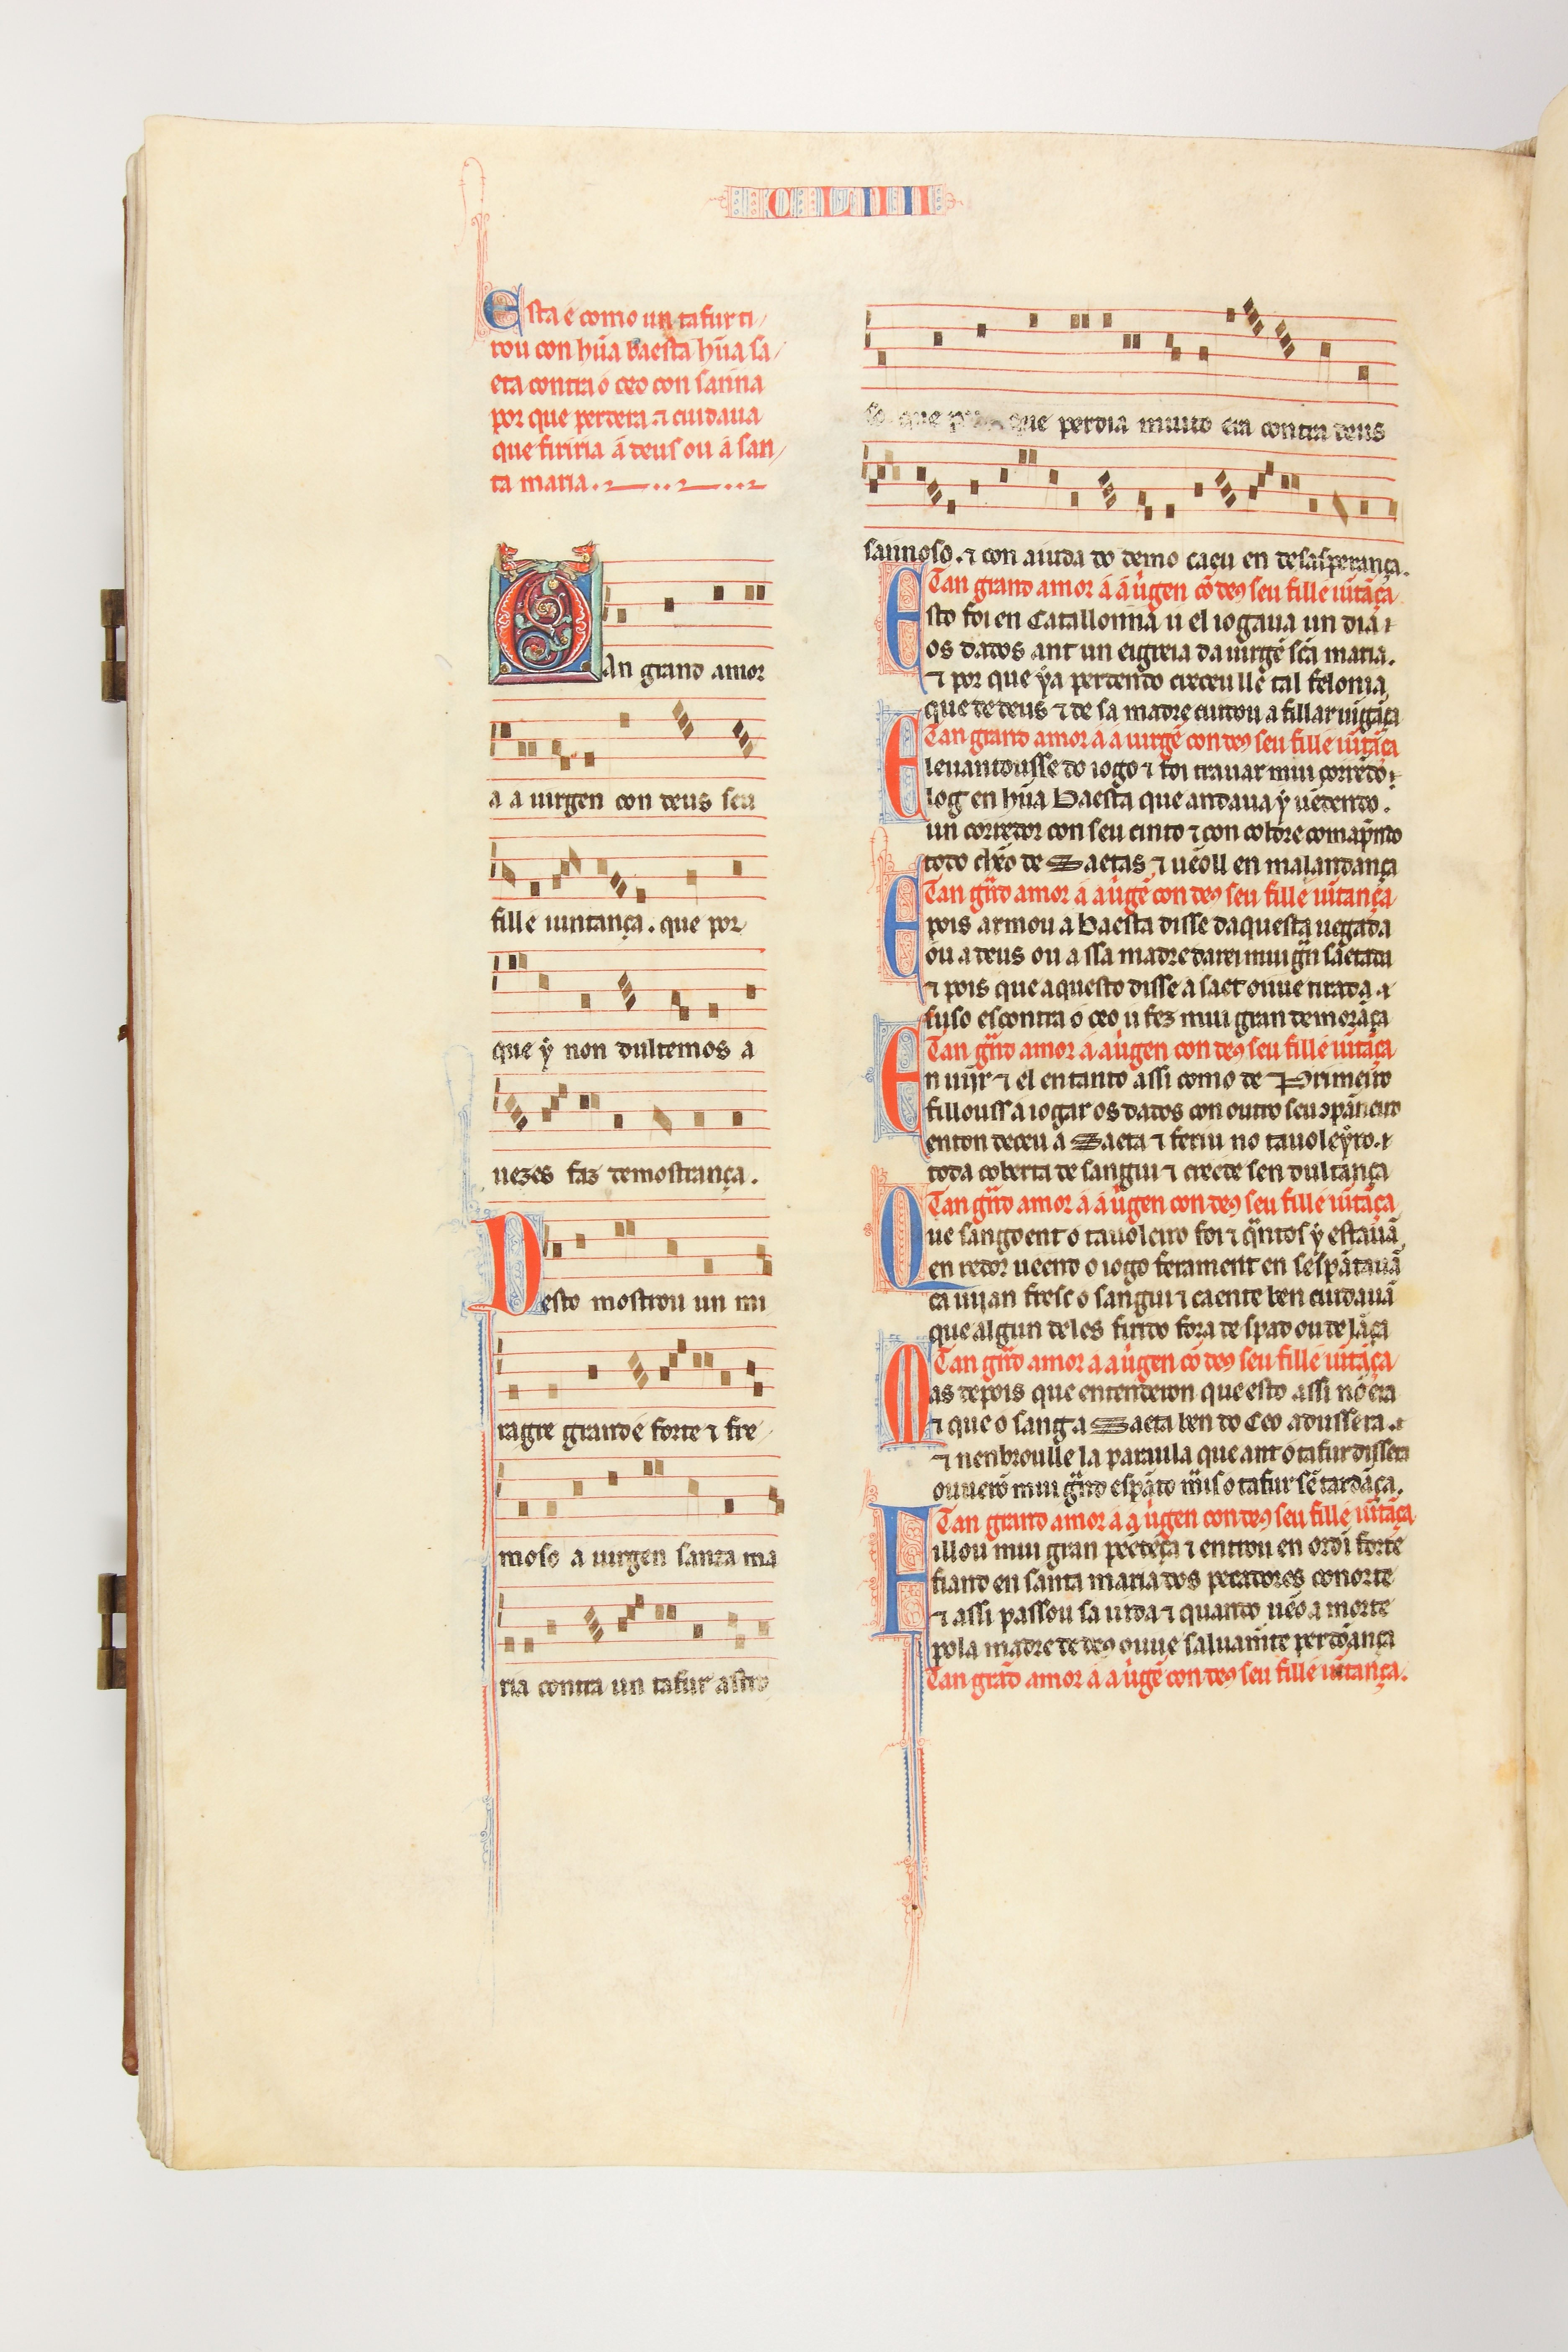 CLIIII
Esta é como un tafur ti
rou con hũa baesta hũa sa
eta contra o ceo con sanna
por que perdera ⁊ cuidaua
que firiria á deus ou á san
ta maria.
TAn grand amor
á a uirgen con deus seu
fill e iuntança. que por
que ẏ non dultemos a
uezes faz demostrança.
Desto mostrou un mi
ragre grand e forte ⁊ fre
moso a uirgen santa ma
ria contra un tafur astro
so. que que perdia muito era contra deus
sannoso. ⁊ con aiuda do demo caeu en desasperança.
Tan grand amor á á uirgen cõ deꝯ seu fill e iũtãça
Esto foi en Catallonna u el iogaua un dia ⁊
os dados ant un eigreia da uirgẽ scã maria.
⁊ por que ẏa perdendo creceu lle tal felonia
que de deus ⁊ de sa madre cuidou a fillar uĩgãça
Tan grand amor á a uirgẽ con deꝯ seu fill e iũtãça
E leuantousse do iogo ⁊ foi trauar mui corrẽdo.
log en hũa baesta que andaua ẏ uẽdendo.
un corredor con seu cinto ⁊ con coldre com aprẽdo
todo chẽo de Saetas ⁊ uẽoll en malandança
Tan grãd amor á a uirgẽ con deꝯ seu fill e iũtança
E pois armou a baesta disse daquesta uegada
ou a deus ou a ssa madre darei mui grã saetada
⁊ pois que aquesto disse a saet ouue tirada.
suso escontra o ceo u fez mui gran demorãça
Tan grãd amor á a uirgen con deꝯ seu fill e iũtãça
En uĩjr ⁊ el en tanto assi como de Primeiro
fillouss a iogar os dados con outro seu ꝯpãneiro
enton deceu a Saeta ⁊ feriu no tauoleẏro. ⁊
toda coberta de sangui ⁊ creede sen dultança
Tan grãd amor á á uirgen con deꝯ seu fill e iũtãça
Que sangoent o tauoleiro foi ⁊ quãtos ẏ estauã
en redor ueend o iogo ferament en sespãtauã
ca uijan fresc o sangui ⁊ caente ben cuidauã
que algun deles ferido fora despad ou de lãça
Tan grãd amor á a uirgen cõ deꝯ seu fill e iũtãça
Mas depois que entenderon que esto assi nõ era
⁊ que o sang a Saeta ben do Ceo adussera. ⁊
⁊ nenbroulle la paraula que ant o tafur dissera
ouuerõ mui grãd espãto ⁊ o tafur sẽ tardãça.
Tan grand amor á a uirgen con deꝯ seu fill e iũtãça
Fillou mui gran pẽedẽça ⁊ entrou en ordĩ forte
fiand en santa maria dos pecadores conorte
⁊ assi passou sa uida ⁊ quando uẽo a morte
pola madre de deꝯ ouue saluamẽt e perdõança
Tan grãd amor á a uirgẽ con deꝯ seu fill e iũtança.